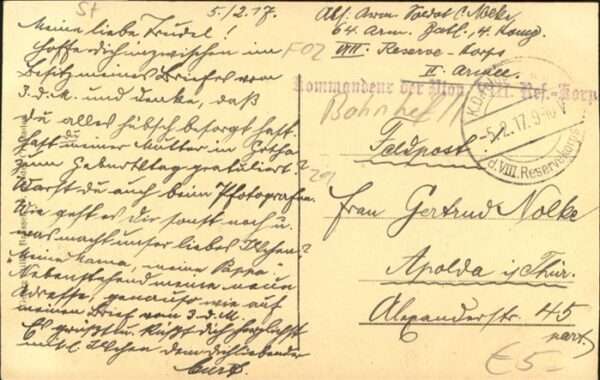 St
5./2.17.
Meine liebe Trudel!
Hoffe dich inzwischen im
Besitz meines Briefes vom
3. d. M. und denke, daß
du alles hübsch besorgt hast.
Hast du meiner Mutter in Gotha
zum Geburtstag gratuliert?
Warst du auch beim Photografen?
Wie geht es dir sonst noch u.
was macht unser liebes
Meine Mama, meine Pappa
Nebenstehend meine neue
Adresse, genauso wie auf
meinen Brief vom 3. d. M.
Es grüßt u. küßt dich herzlichst
mit l. dem dichliebender
Curt.
Abs. Arm. Soldat C. Nolke
64. Arm. Batl., 4. Komp.
VIII. Reserve-Korps
Armee.
Kommandeur der Mun. Res.-Korps
Bahnhof
5.2.17.9-10V
d.VIII.Reservekorps
Feldpost!
Frau Gertrud Nolke
Apolda i/Thür.
Alexanderstr. 45
part.
€5-